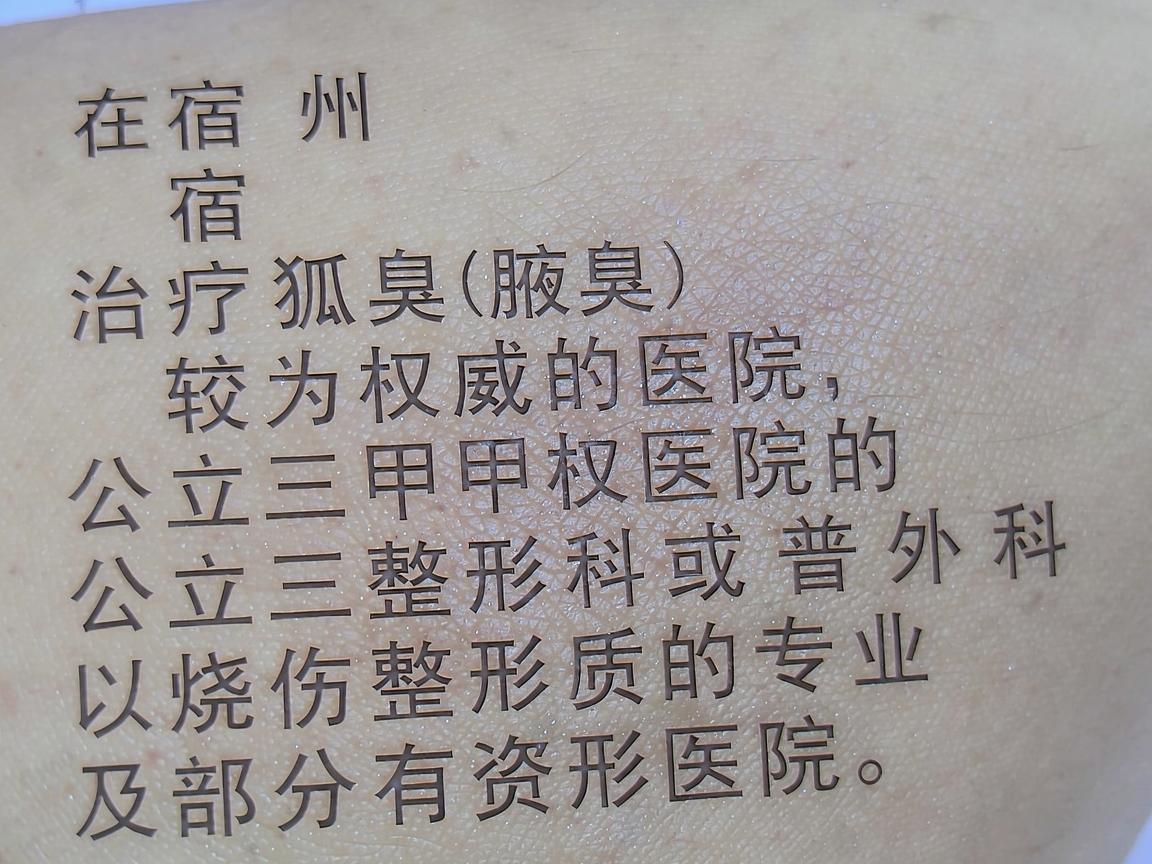 在宿 州
宿
治疗狐臭(腋臭)
较为权威的医院,
公立三甲甲权医院的
公立三整形科或普外科
以烧伤整形质的专业
及部分有资形医院。